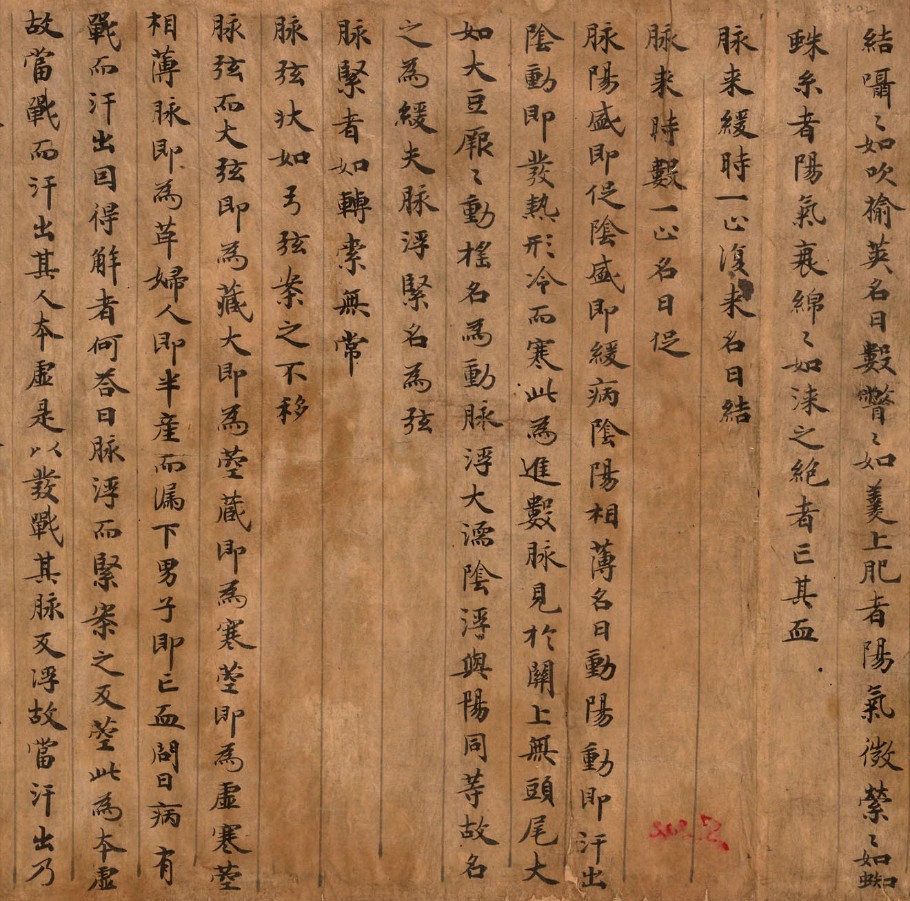 結囁〻如吹揄莢名曰數瞥〻如羹上肥者陽氣微縈〻如蜘
蛛糸者陽氣衰綿〻如涞之絶者亡其血
脉来緩時一止復来名曰結
脉来時數一止名曰促
脉陽盛即促陰盛即緩病陰陽相薄名曰動陽動即汗出
陰動即發熱形冷而寒此為進數脉見於關上無頭尾大
如大豆厥〻動揺名為動脉浮大濡陰浮與陽同等故名
之為緩夫脉浮緊名為弦
脉緊者如轉索無常
脉弦狀如弓弦案之不移
脉弦而大弦即為藏大即為芤蔵即為寒芤即為虚寒芤
相薄脉即為革婦人即半産而漏下男子即亡血問曰病有
戰而汗出因得解者何荅曰脉浮而緊案之反芤此為本虚
故當戰而汗出其人本虚是以發戰其脉反浮故當汗出乃